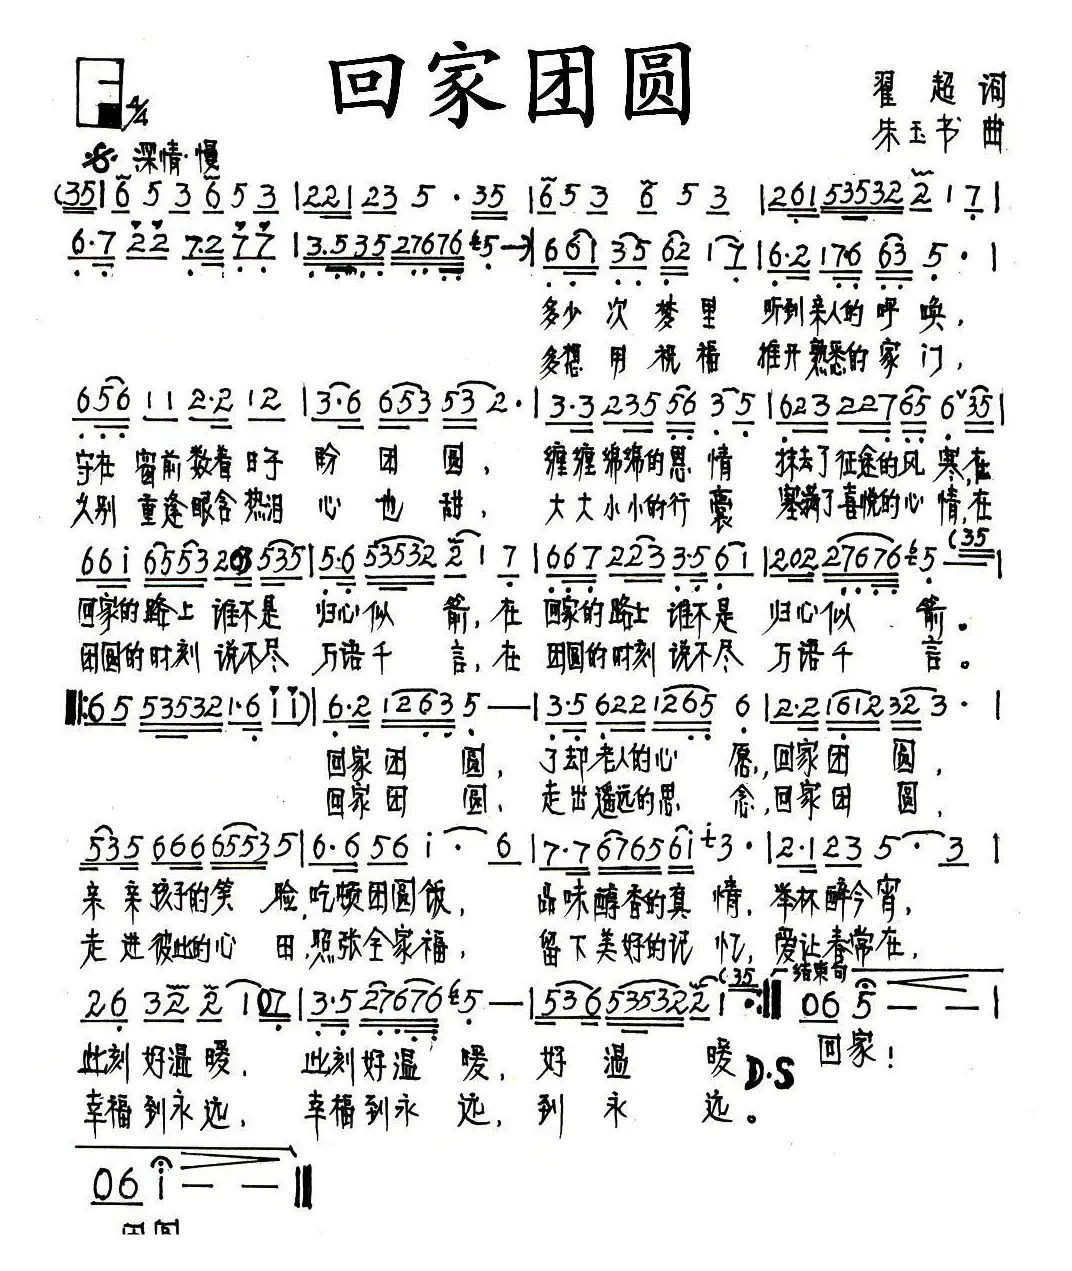 回家团圆
翟超词
朱玉书曲
4/4
深情·慢
(35|6 5 3 6 5 3|221 23 5·35|6 5 3 6 5 3|261 53532 2 1 7|
6·7 22 7·2 77|3·535 27676 5—)|661 35 62 17|6·2 176 63 5·|
多少次梦里 听到亲人的呼唤,
多想用祝福 推开熟悉的家门,
656 11 2·2 12|3·6 653 53 2·|3·3 235 56 3·5|623 227 65 6 35|
守在窗前数着日子盼团圆, 缠缠绵绵的思情 抹去了征途的风寒,在
久别重逢眼含热泪心也甜, 大大小小的行囊 塞满了喜悦的心情,在
(35
661 6553 203 535|5·6 53532 2 1 7|667 223 3·5 61|202 27676 5
回家的路上 谁不是归心似箭,在 回家的路上 谁不是归心似箭。
团圆的时刻 说不尽万语千言,在 团圆的时刻 说不尽万语千言。
‖:65 53532 1·6 11)|6·2 1263 5—|3·5 622 1265 6|2·2 1612 32 3·|
回家团圆, 了却老人的心愿,回家团圆,
回家团圆, 走出遥远的思念,回家团圆,
535 666 6553 5|6·6 56 1·6|7·7 6765 61 3·|2·1 23 5·3|
亲亲孩子的笑脸,吃顿团圆饭, 品味醇香的真情,举杯醉今宵,
走进彼此的心田,照张全家福, 留下美好的记忆,爱让春常在,
(35 结束句
26 32 2 107|3·5 27676 5—|536 53532 2 1·:‖06 5——|
此刻好温暖, 此刻好温暖,好温暖 D·S 回家!
幸福到永远, 幸福到永远,到永远。
06 1——‖
团圆